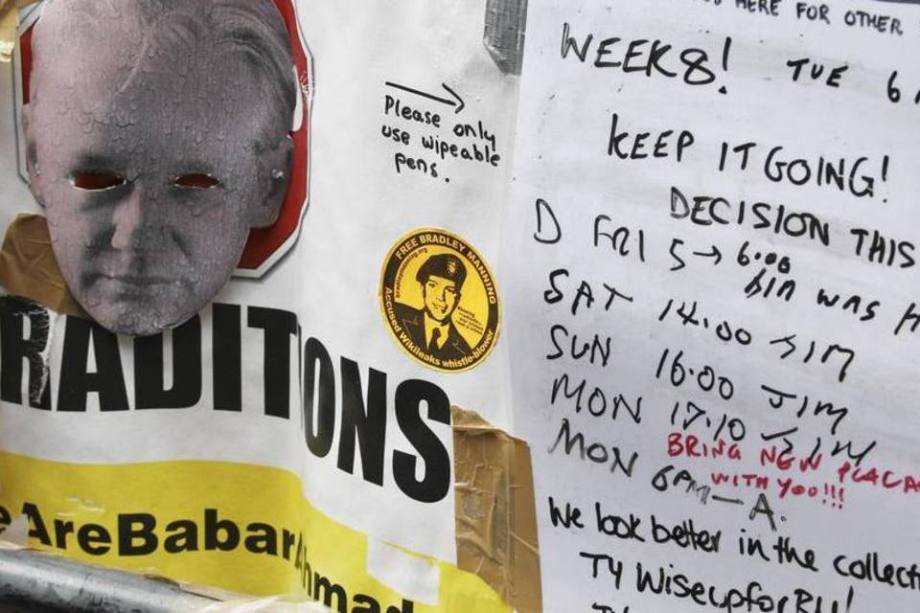 Please only
use wipeable
pens.
FREE BRADLEY MANNING
Accused Wikileaks whistle-blower
RADITIONS
eAreBabarAhmad
HERE FOR OTHER
WEEK8! TUE 6
KEEP IT GOING!
DECISION THIS
D FRI 5→6:00
WAS
SAT 14.00 JIM
SUN 16.00 JIM
MON 17.10 JIM
BRING NEW PLACA
WITH YOU!!!
MON 6PM — A.
We look better in the collect
TY WiseupforBM!